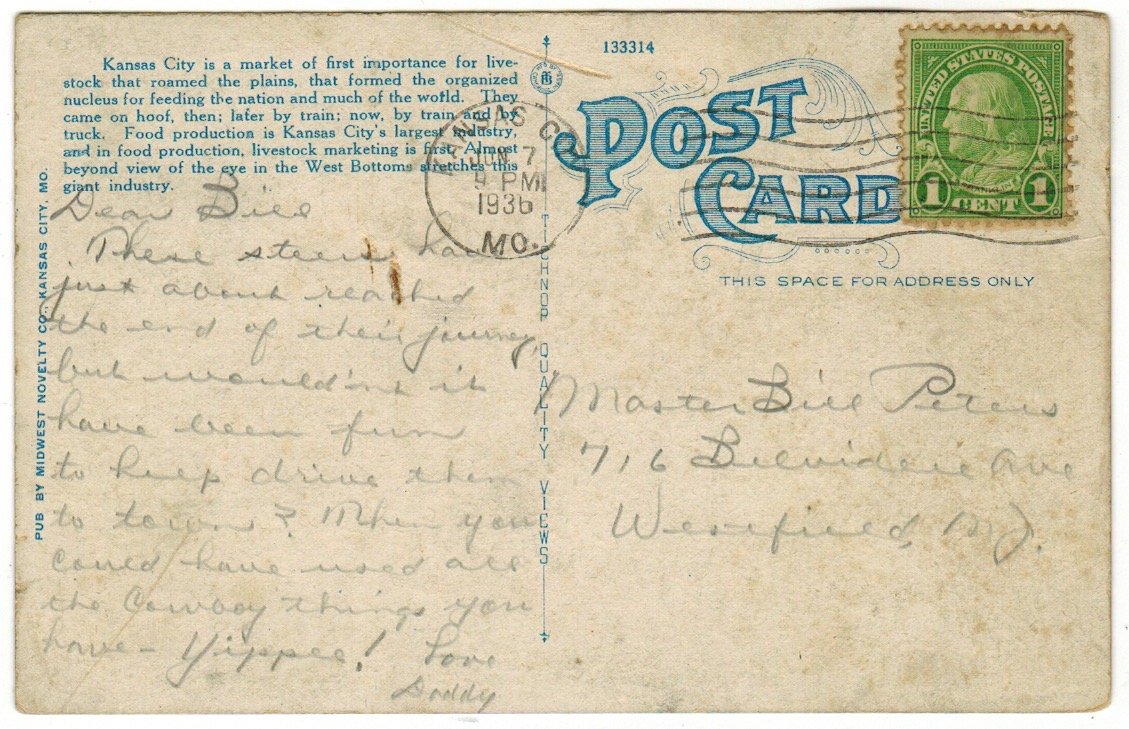 Kansas City is a market of first importance for live-
stock that roamed the plains, that formed the organized
nucleus for feeding the nation and much of the world. They
came on hoof, then; later by train; now, by train and by
truck. Food production is Kansas City's largest industry,
and in food production, livestock marketing is first. Almost
beyond view of the eye in the West Bottoms stretches this
giant industry.
Dear Bill
These steers have
just about reached
the end of their journey,
but wouldn't it
have been fun
to help drive them
to town? Then you
could have used all
the Cowboy things you
have - Yippee! Love
Daddy
PUB BY MIDWEST NOVELTY CO., KANSAS CITY, MO.
TICHNOR QUALITY VIEWS
133314
POST
CARD
KANSAS CITY
JUN 7
9 PM
1936
MO.
UNITED STATES POSTAGE
FRANKLIN
1 CENT 1
THIS SPACE FOR ADDRESS ONLY
Master Bill Peters
716 Belvidere Ave
Westfield, NJ.